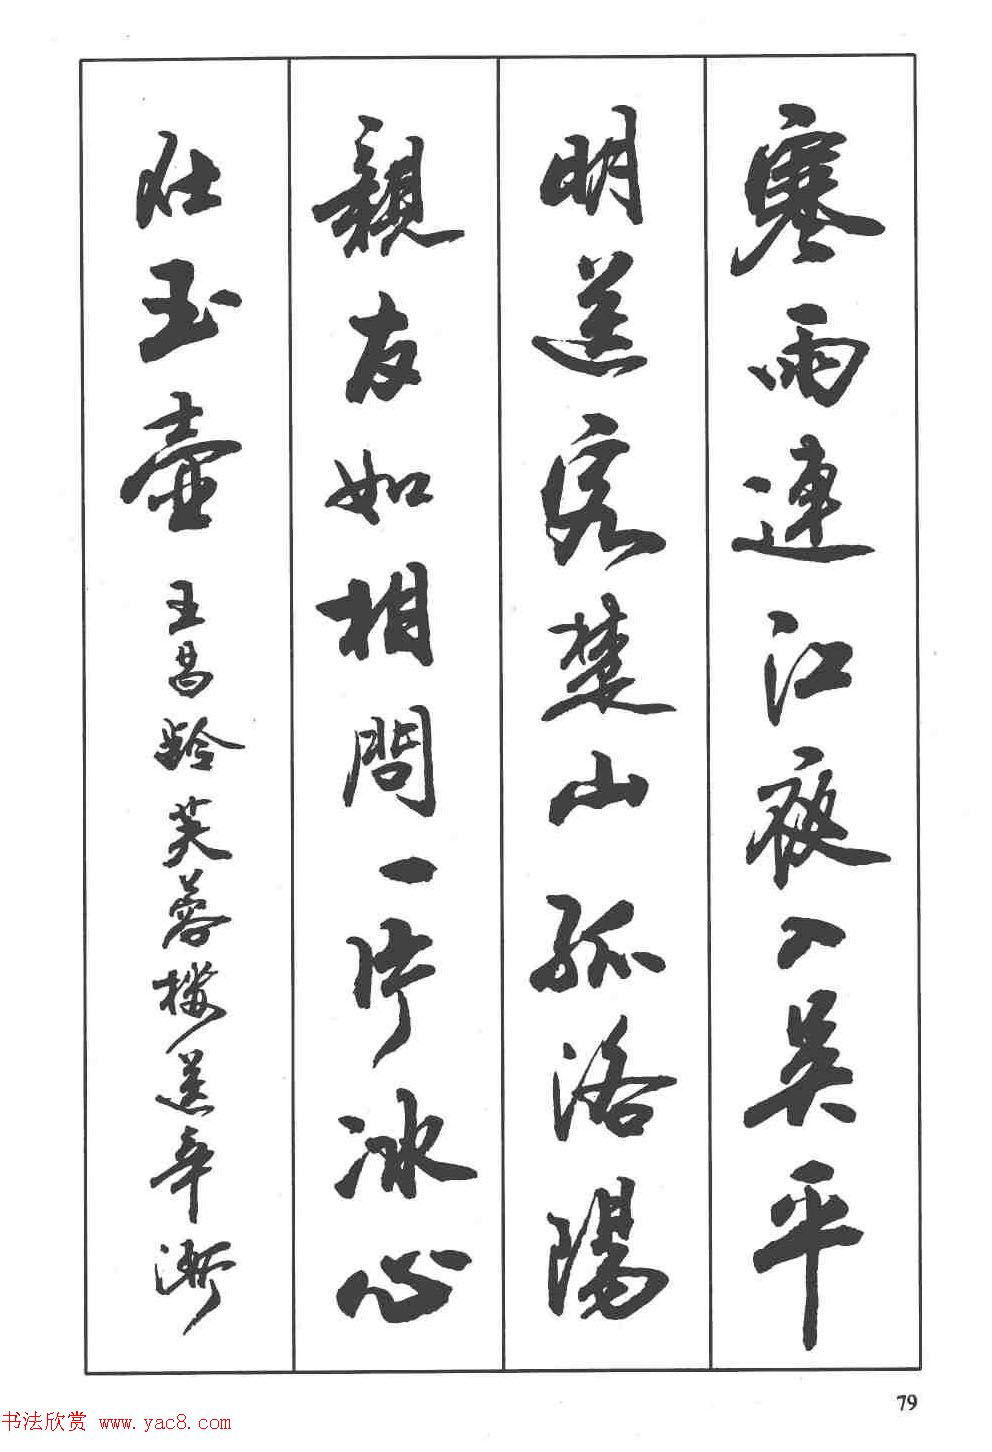 寒雨連江夜入吴平
明送客楚山孤洛陽
親友如相問一片冰心
在玉壺 王昌齡芙蓉樓送辛漸
79
书法欣赏 www.yac8.com